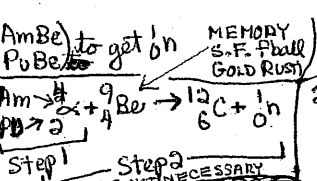 AmBe) to get ¹₀n
PuBe
MEMORY
S.F. fball
GOLD RUSH
Am → ⁴₂α + ⁹₄Be → ¹²₆C + ¹₀n
Pu →
Step 1
Step 2
NECESSARY